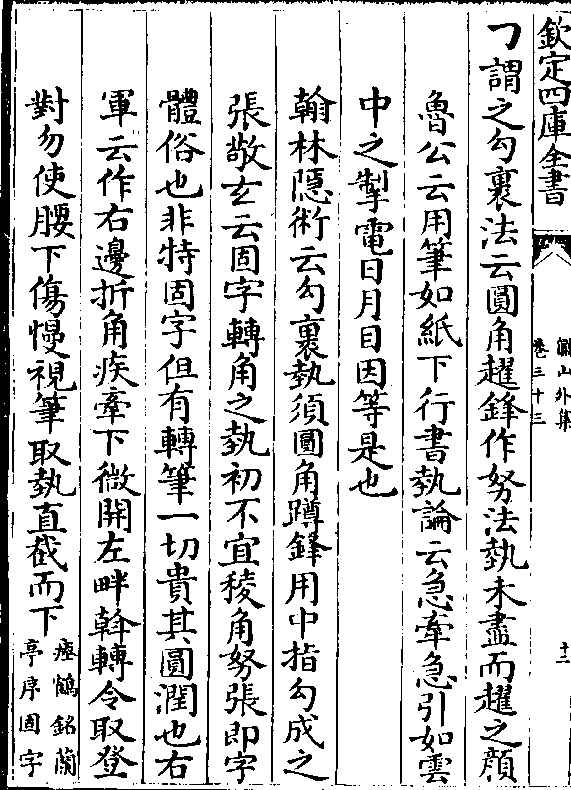 欽定四庫全書
㵎山外集
卷三十三
十二
㇆謂之勾裏法云圓角趯鋒作努法埶未盡而趯之顔
魯公云用筆如紙下行書埶論云急牽急引如雲
中之掣電日月目因等是也
翰林隱術云勾裏埶須圓角蹲鋒用中指勾成之
張敬玄云固字轉角之埶初不宜稜角努張即字
體俗也非特固字但有轉筆一切貴其圓潤也右
軍云作右邊折角疾牽下微開左畔斡轉令取登
對勿使腰下傷慢視筆取埶直截而下
瘞鶴銘蘭
亭序固字